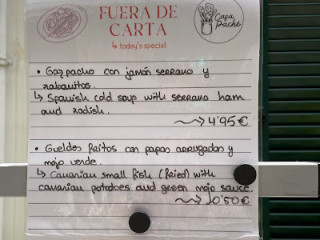 FUERA DE
CARTA
↳ today's special
Capa
Pacht
• Gazpacho con jamón serrano y
rabanitos.
↳ Spanish cold soup with serrano ham
and radish.
4'95€
• Gueldes fritos con papas arrugadas y
mojo verde.
↳ Canarian small fish (fried) with
canarian potatoes and green mojo sauce.
10'50€